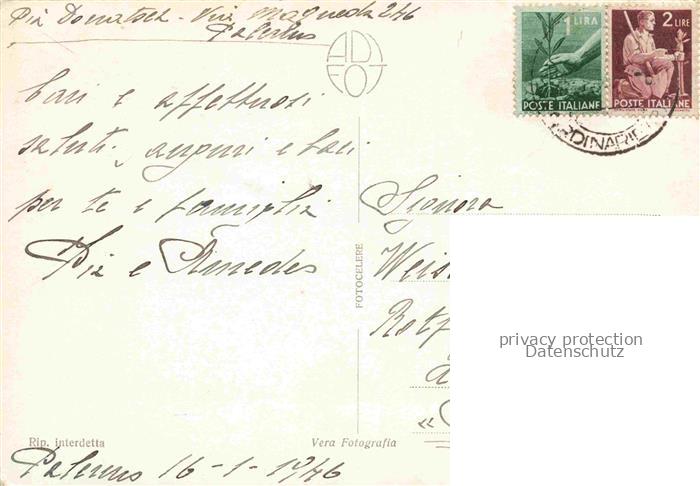 Pia Donatsch - Via Maqueda 246
Palermo
ADFOT
1 LIRA
POSTE ITALIANE
2 LIRE
POSTE ITALIANE
ORDINARIE
Cari e affettuosi
saluti, auguri e baci
per te e famiglia
Pia e Amedeo
FOTOCELERE
Signora
privacy protection
Datenschutz
Rip. interdetta
Vera Fotografia
Palermo 16-1-1946